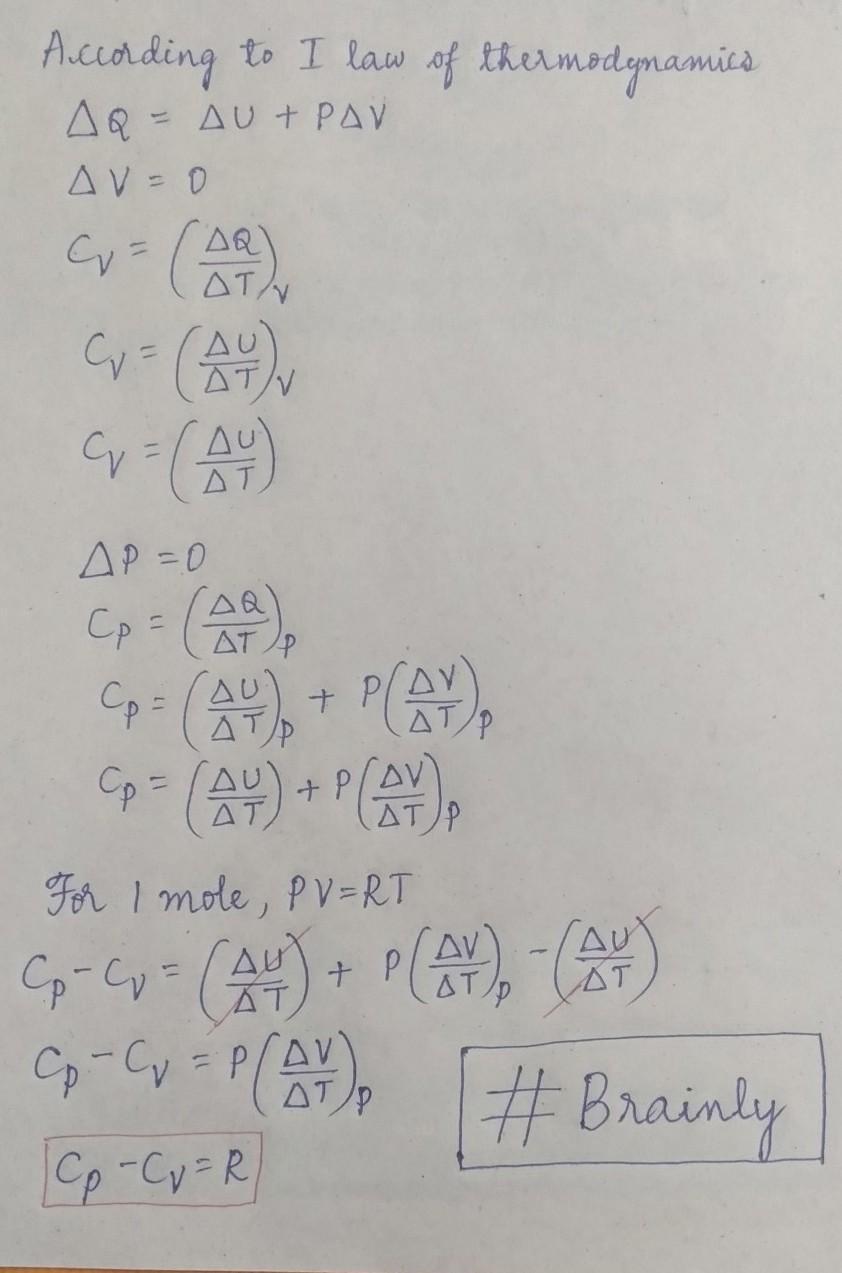 According to I law of thermodynamics
ΔQ = ΔU + PΔV
ΔV = 0
C_V = (ΔQ/ΔT)_V
C_V = (ΔU/ΔT)_V
C_V = (ΔU/ΔT)
ΔP = 0
C_P = (ΔQ/ΔT)_P
C_P = (ΔU/ΔT)_P + P(ΔV/ΔT)_P
C_P = (ΔU/ΔT) + P(ΔV/ΔT)_P
For 1 mole, PV=RT
C_P - C_V = (ΔU/ΔT) + P(ΔV/ΔT)_P - (ΔU/ΔT)
C_P - C_V = P(ΔV/ΔT)_P
# Brainly
C_P - C_V = R